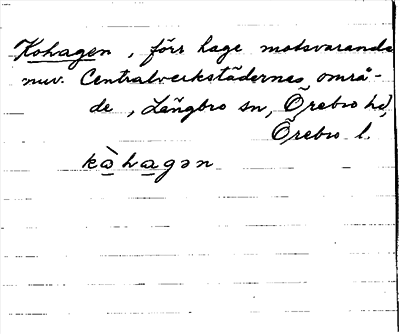 Kohagen, förr hage motsvarande
nuv. Centralverkstädernas områ-
de, Längbro sn, Örebro hd,
Örebro l.
kò̲ha̲gən